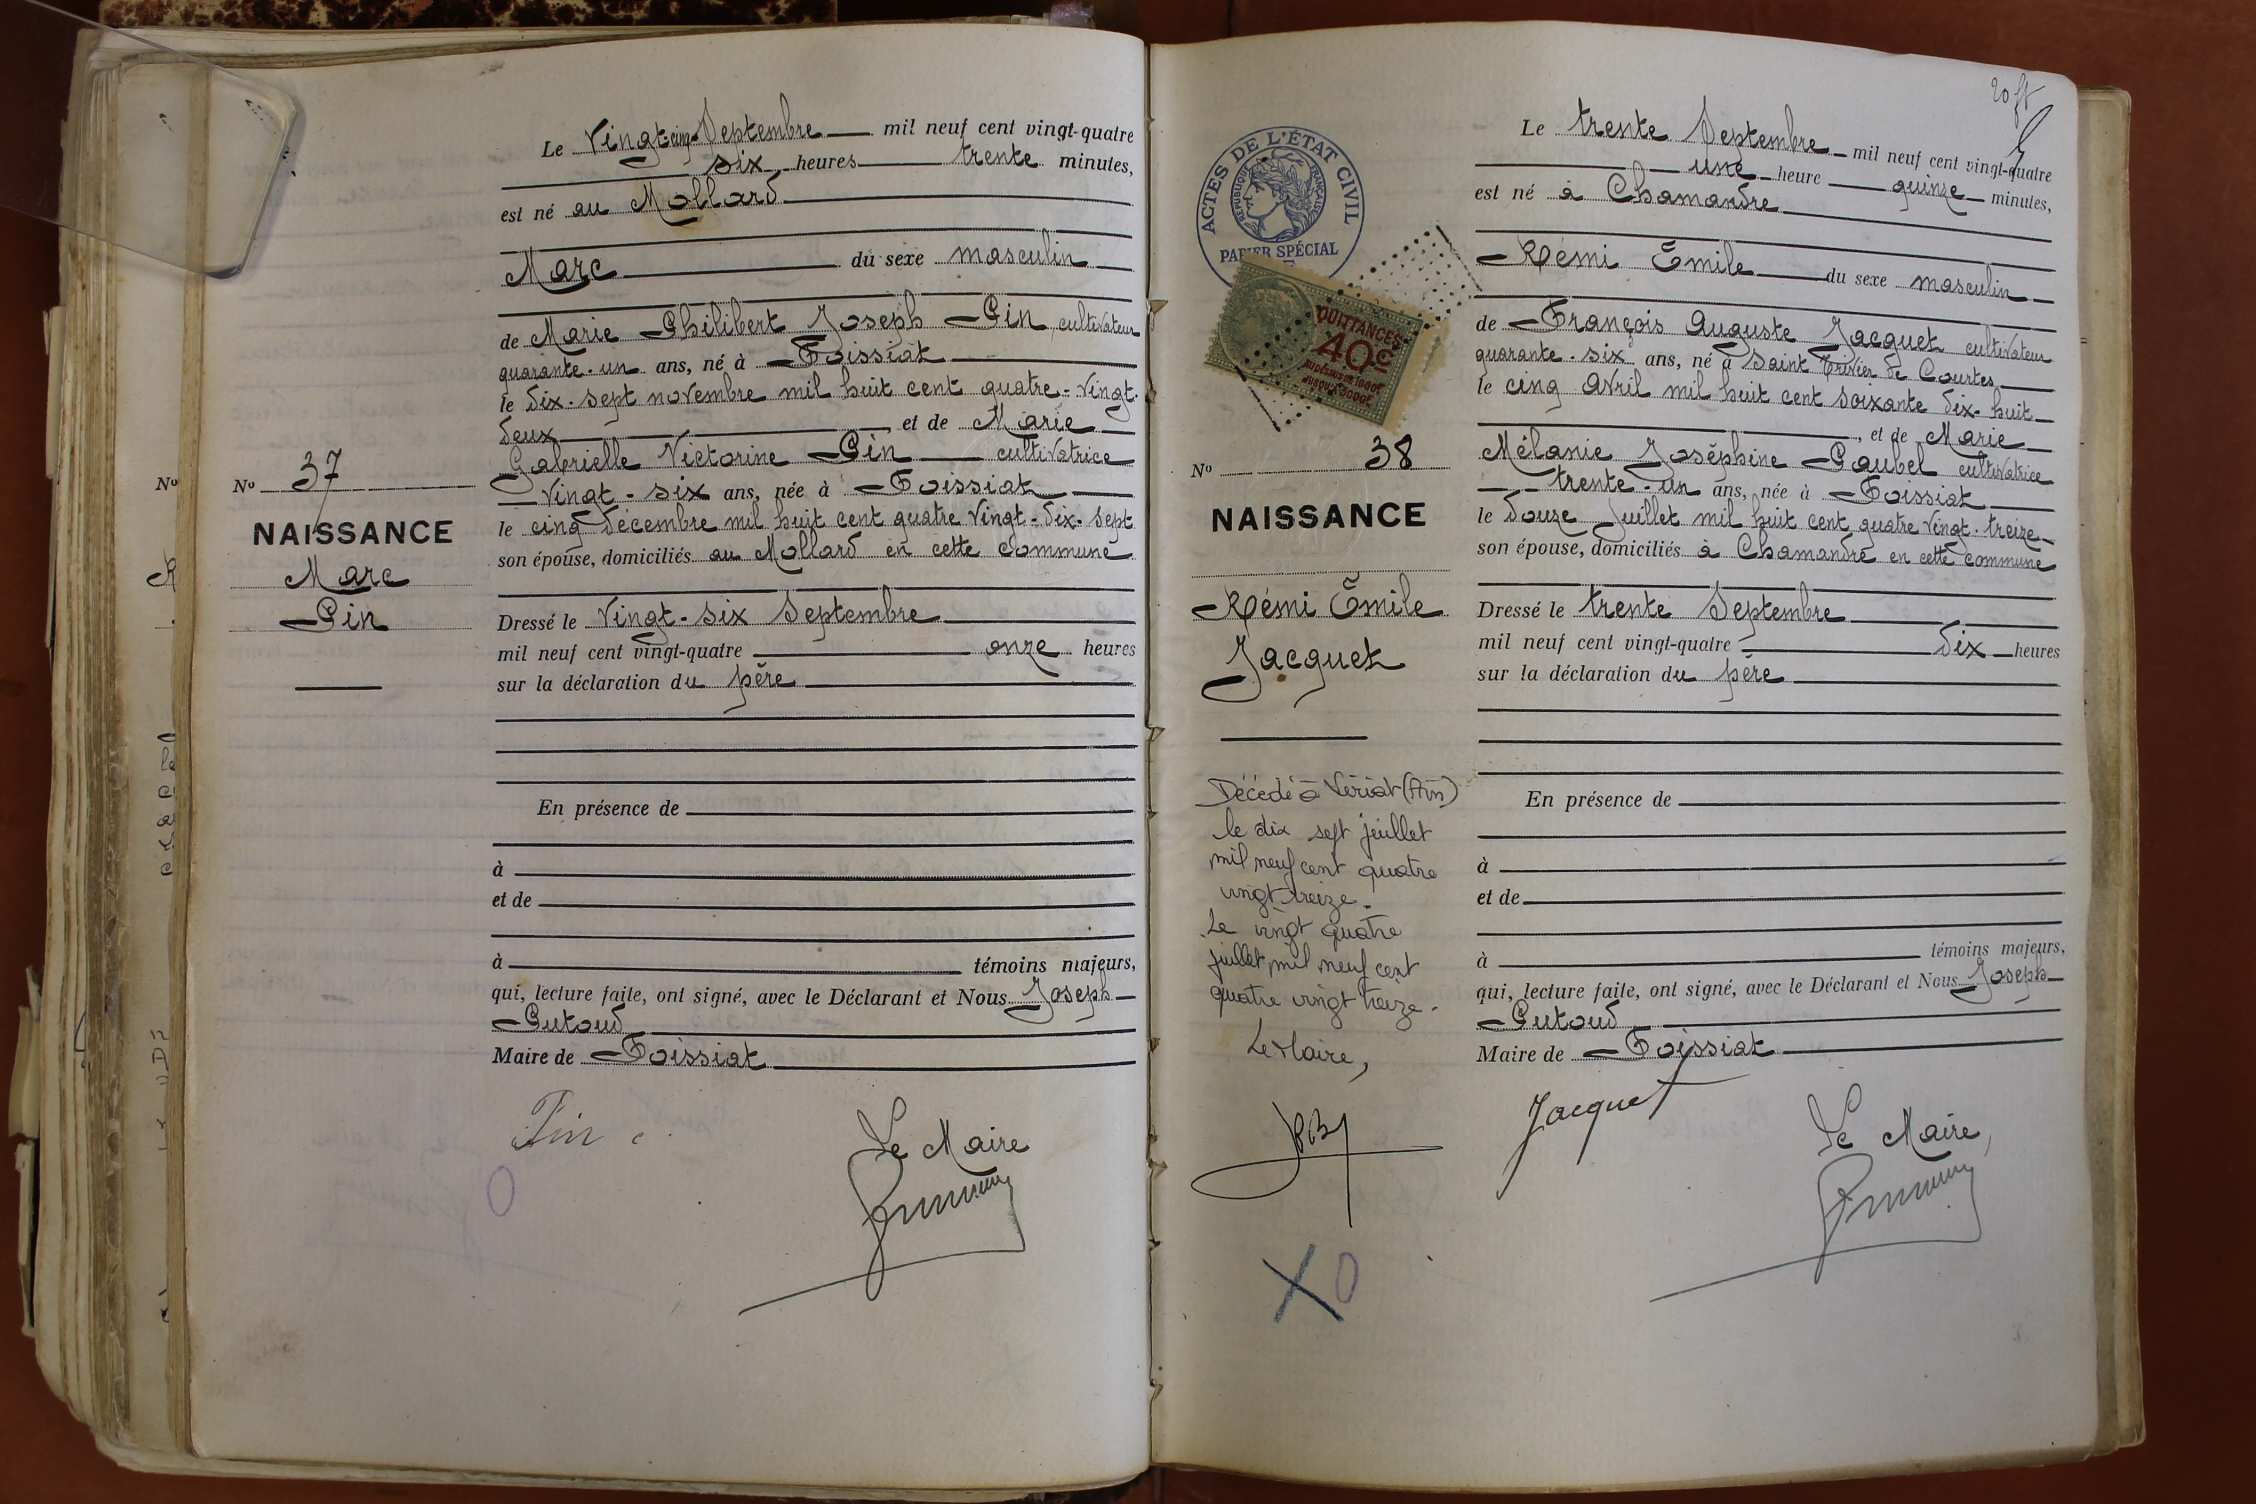 Le Vingt-cinq Septembre mil neuf cent vingt-quatre
six heures trente minutes,
est né au Mollard
Marc du sexe masculin
de Marie Philibert Joseph Pin cultivateur
quarante-un ans, né à Foissiat
le dix-sept novembre mil huit cent quatre-vingt-
deux, et de Marie
Gabrielle Victorine Pin cultivatrice
vingt-six ans, née à Foissiat
le cinq décembre mil huit cent quatre vingt-dix-sept
son épouse, domiciliés au Mollard en cette commune
Dressé le Vingt-six Septembre
mil neuf cent vingt-quatre onze heures
sur la déclaration du père
En présence de
à
et de
à témoins majeurs,
qui, lecture faite, ont signé, avec le Déclarant et Nous Joseph
Putoud
Maire de Foissiat
Pin
Le Maire
No
No 37
NAISSANCE
Marc
Pin
20 ft
ACTES DE L'ÉTAT CIVIL
RÉPUBLIQUE FRANÇAISE
PAPIER SPÉCIAL
QUITTANCES
40c
AU DESSUS DE 1000F
JUSQU'A 3000F
No 38
NAISSANCE
Rémi Émile
Jacquet
Décédé à Viriat (Ain)
le dix sept juillet
mil neuf cent quatre
vingt treize.
Le vingt quatre
juillet mil neuf cent
quatre vingt treize.
Le Maire,
X O
Le trente Septembre mil neuf cent vingt-quatre
une heure quinze minutes,
est né à Chamandre
Rémi Émile du sexe masculin
de François Auguste Jacquet cultivateur
quarante-six ans, né à Saint Trivier de Courtes
le cinq Avril mil huit cent soixante dix-huit
, et de Marie
Mélanie Joséphine Paubel cultivatrice
trente-un ans, née à Foissiat
le douze Juillet mil huit cent quatre vingt-treize
son épouse, domiciliés à Chamandre en cette commune
Dressé le trente Septembre
mil neuf cent vingt-quatre dix heures
sur la déclaration du père
En présence de
à
et de
à témoins majeurs,
qui, lecture faite, ont signé, avec le Déclarant et Nous Joseph
Putoud
Maire de Foissiat
Jacquet
Le Maire,